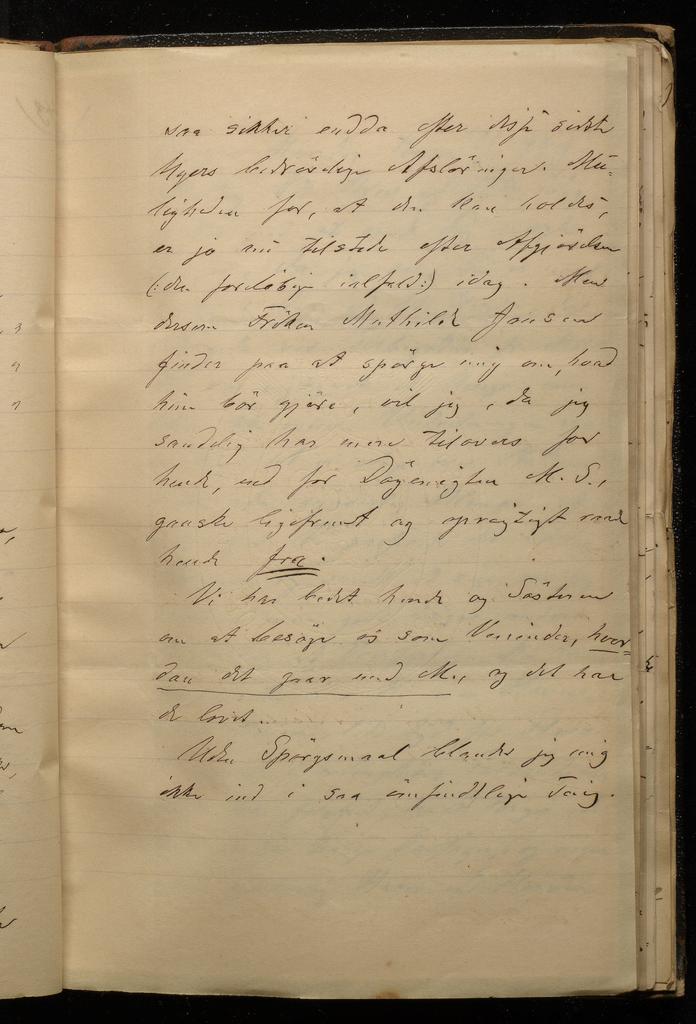 saa sikker endda efter disse sidste
Ugers bedrövelige Afslöringer. Mu-
ligheden for, at den kan holdes,
er jo nu tilstede efter Afgjörelsen
(: den forelöbige ialfald :) idag. Men
dersom Fröken Mathilde Jensen
finder paa at spörge mig om, hvad
hun bör gjöre, vil jeg, da jeg
sandelig har mere tilovers for
hende, end for Dögenigten M. S.,
ganske ligefremt og oprigtigt raade
hende fra.
Vi har bedet hende og Sösteren
om at besöge os som Veninder, hvor-
dan det gaar med M., og det har
de lovet.
Uden Spörgsmaal blander jeg mig
ikke ind i saa ömfindtlige Ting.